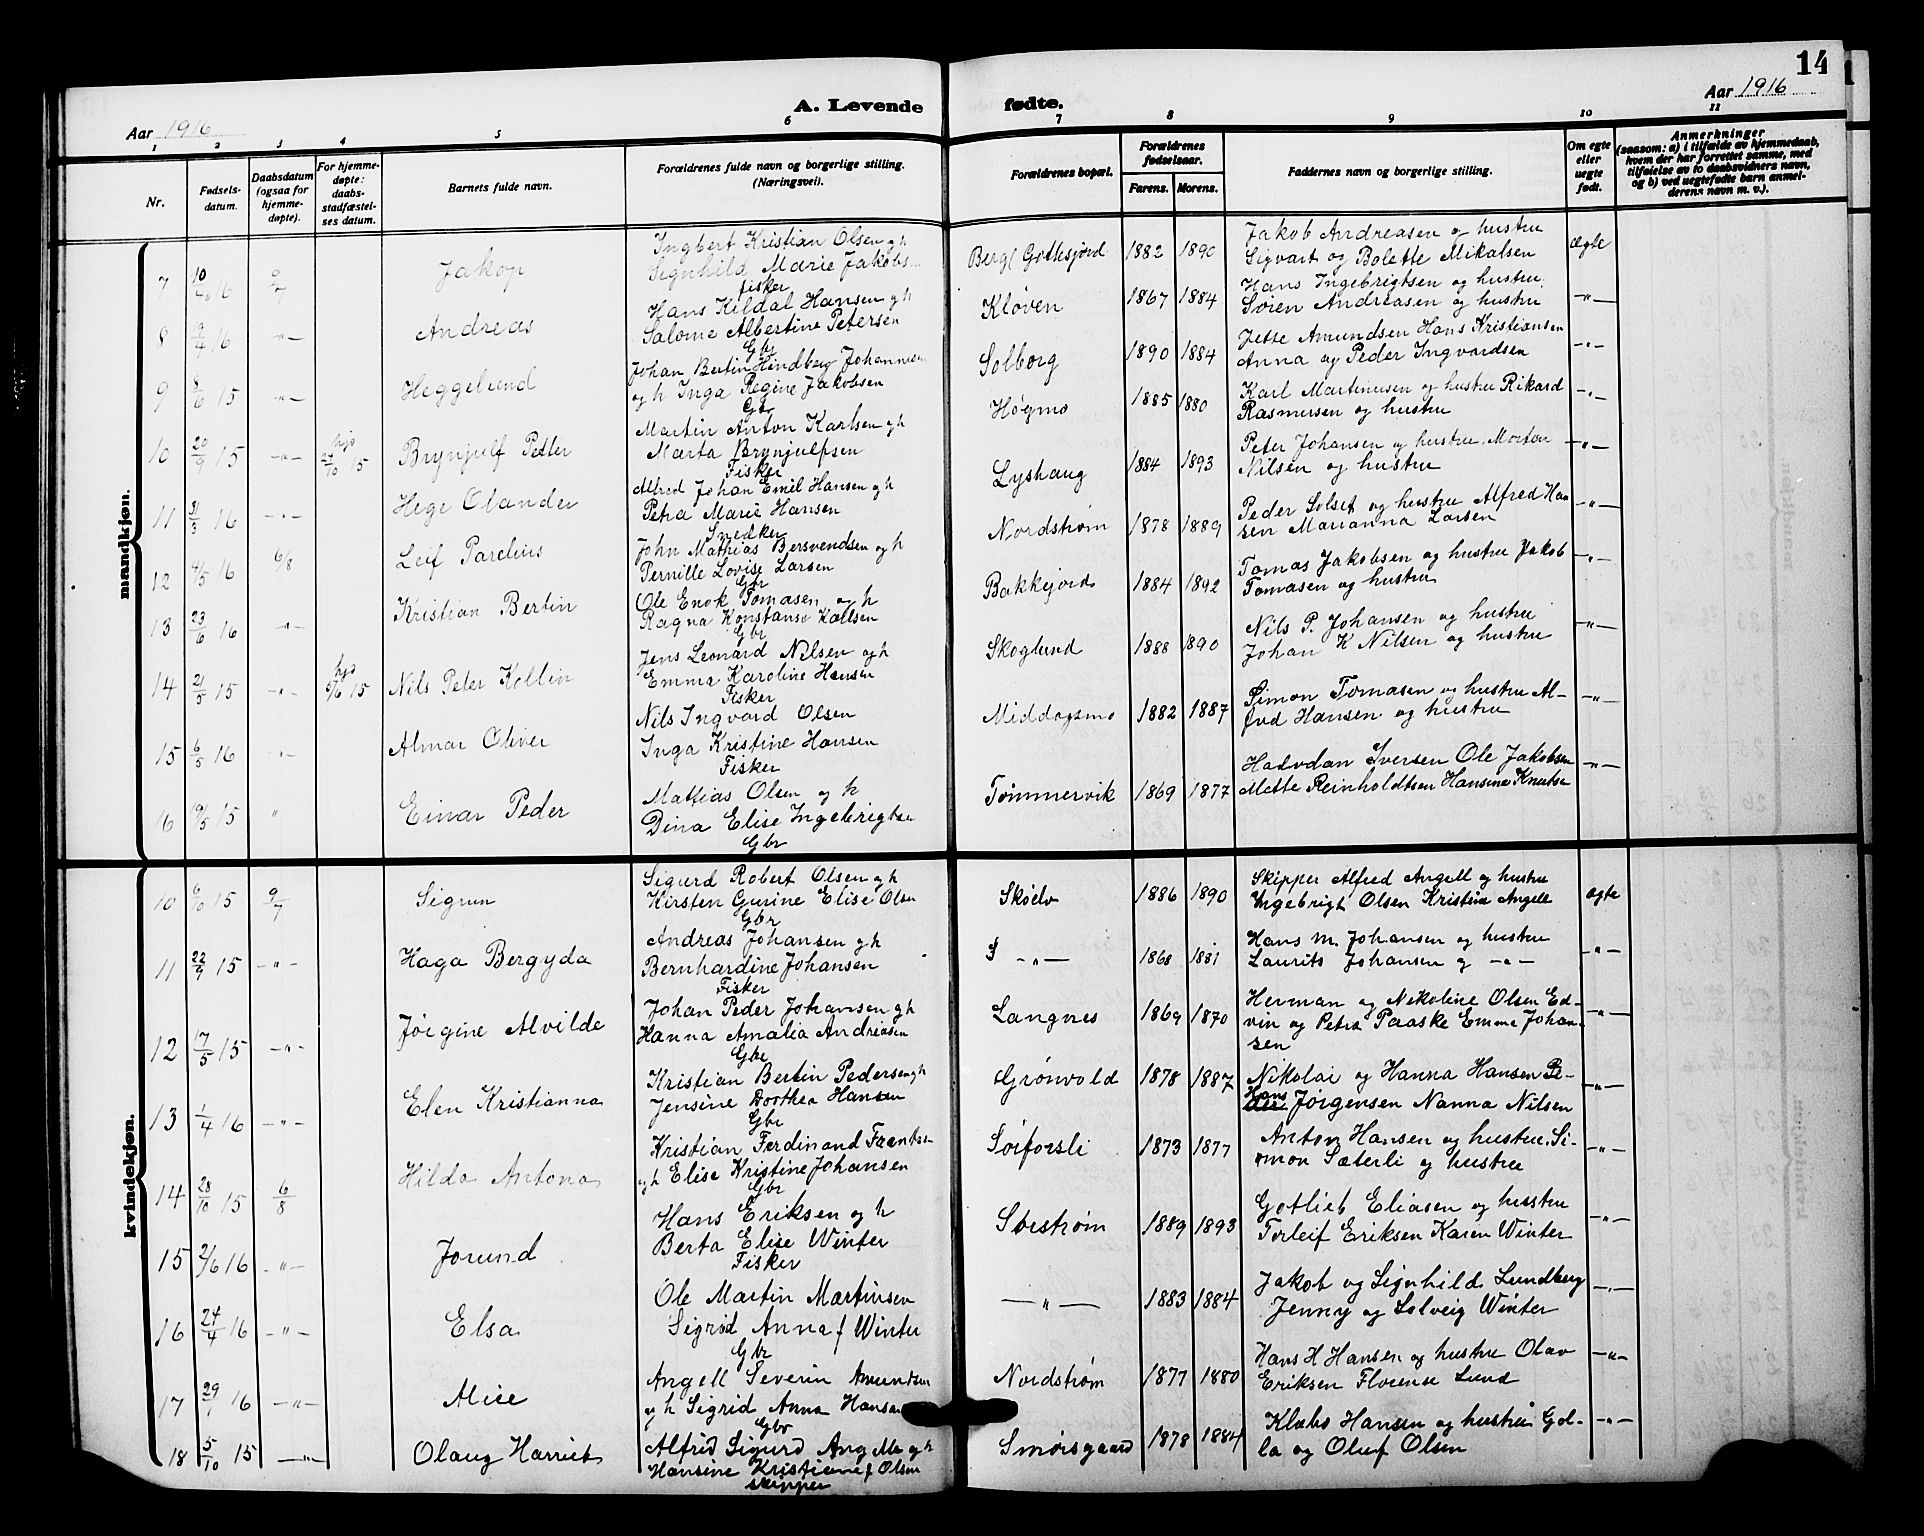 14
A. Levende fødte.
Aar 1916
Aar 1916
1 2 3 4 5 6 7 8 9 10 11
Nr.
Fødsels-
datum.
Daabsdatum
(ogsaa for
hjemme-
døpte).
For hjemme-
døpte:
daabs-
stadfæstel-
ses datum.
Barnets fulde navn.
Forældrenes fulde navn og borgerlige stilling.
(Næringsvei).
Forældrenes bopæl.
Forældrenes
fødselsaar.
Farens. Morens.
Faddernes navn og borgerlige stilling.
Om egte
eller
uegte
født.
Anmerkninger
(saasom: a) i tilfælde av hjemmedaab,
hvem der har forrettet samme, med
tilføielse av to daabsvidners navn,
og b) ved uegtefødt barn anmel-
derens navn m. v.).
mandkjøn.
7 16 9/7 Jakop
Ingbert Kristian Olsen gh
Signhild Marie Jakobs
fisker
Berg( 1882 1890
Jakob Andreasen og hustru
Sigvart og Bolette Mikalsen
ægte
8 16 -"- Andreas
Hans Kildal Hansen gh
Salome Albertine Petersen
Gbr
Kløven 1867 1884
Hans Ingebrigtsen og hustru
Søren Andreasen og hustru
-"-
9 8/6 15 -"- Heggelund
Johan Bertin Hindberg Johannesen
og h Inga Regine Jakobsen
Gbr
Solborg 1890 1884
Jette Amundsen Hans Kristiansen
Anna og Peder Ingvardsen
-"-
10 20/9 15 -"- hjd 24/10 15 Brynjulf Petter
Martin Anton Karlsen gh
Marta Brynjulfsen
Fisker
Høgmo 1885 1880
Karl Martinusen og hustru Rikard
Rasmusen og hustru
-"-
11 31/3 16 -"- Hege Olander
Alfred Johan Emil Hansen gh
Petra Marie Hansen
Snedker
Lyshaug 1884 1893
Peter Johansen og hustru Morten
Nilsen og hustru
-"-
12 4/5 16 6/8 Leif Parelius
John Mathias Bersvendsen og h
Pernille Lovise Larsen
Gbr
Nordstrøm 1878 1889
Peder Solset og hustru Alfred Han
sen Marianna Larsen
-"-
13 23/6 16 -"- Kristian Bertin
Ole Enok Tomasen og h
Ragna Konstanse Karlsen
Gbr
Bakkejord 1884 1892
Tomas Jakobsen og hustru Jakob
Tomasen og hustru
-"-
14 21/5 15 -"- hjd 5/6 15 Nils Peter Kollin
Jens Leonard Nilsen og h
Emma Karoline Hansen
Fisker
Skoglund 1888 1890
Nils P. Johansen og hustru
Johan K Nilsen og hustru
-"-
15 6/5 16 -"- Almar Oliver
Nils Ingvard Olsen
Inga Kristine Hansen
Fisker
Middagsmo 1882 1887
Simon Tomasen og hustru Al-
fred Hansen og hustru
-"-
16 19/5 15 " Einar Peder
Mattias Olsen og h
Dina Elise Ingebrigtsen
Gbr
Tømmervik 1869 1877
Halvdan Iversen Ole Jakobsen
Mette Reinholdtsen Hansine Knutsen
-"-
kvindekjøn.
10 6/10 15 9/7 Sigrun
Sigurd Robert Olsen gh
Kirsten Gurine Elise Olsen
Gbr
Skøelv 1886 1890
Skipper Alfred Angell og hustru
Ingebrigt Olsen Kristine Angell
ægte
11 22/9 15 -"- Haga Bergyda
Andreas Johansen gh
Bernhardine Johansen
Fisker
-"- 1868 1881
Hans M. Johansen og hustru
Laurits Johansen og -"-
-"-
12 17/5 15 -"- Jørgine Alvilde
Johan Peder Johansen gh
Hanna Amalia Andreasen
Gbr
Langnes 1869 1870
Herman og Nikoline Olsen Ed-
vin og Petra Paaske Emma Johan-
sen
-"-
13 1/4 16 -"- Elen Kristianna
Kristian Bertin Pedersen gh
Jensine Dorthea Hansen
Gbr
Grønvold 1878 1887
Nikolai og Hanna Hansen Pe-
Hans
der Jørgensen Nanna Nilsen
-"-
14 28/10 15 6/8 Hilda Antona
Kristian Ferdinand Frantsen
gh Elise Kristine Johansen
Gbr
Sørforsli 1873 1877
Anton Hansen og hustru Si-
mon Sæterli og hustru
-"-
15 2/6 16 -"- Jorund
Hans Eriksen og h
Berta Elise Winter
Fisker
Sbestrøm 1889 1893
Gotlieb Eliasen og hustru
Torleif Eriksen Karen Winter
-"-
16 24/4 16 -"- Elsa
Ole Martin Martinsen
Sigrid Anna f Winter
Gbr
-"- 1883 1884
Jakob og Signhild Lundberg
Jenny og Solveig Winter
-"-
17 29/1 16 -"- Alice
Angell Severin Amundsen
gh Sigrid Anna Hansen
Gbr
Nordstrøm 1877 1880
Hans H Hansen og hustru Olav
Eriksen Florense Lund
-"-
18 5/10 15 -"- Olaug Harriet
Alfred Sigurd Angell og h
Hansine Kristiane f Olsen
skipper
Smørsgaard 1878 1884
Klæbo Hansen og hustru Gol-
la og Oluf Olsen
-"-